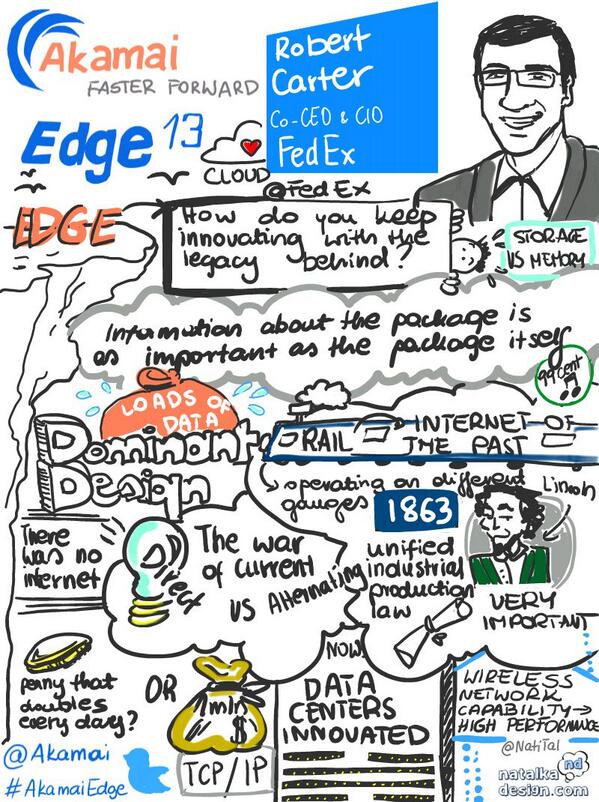 Akamai
FASTER FORWARD
Edge 13
CLOUD
Robert
Carter
Co-CEO & CIO
FedEx
@FedEx
EDGE
How do you keep
innovating with the
legacy behind?
STORAGE
VS MEMORY
Information about the package is
as important as the package itself
99cent
LOADS OF
DATA
Dominant
Design
RAIL
INTERNET OF
THE PAST
operating on different
gauges
1863
Lincoln
There
was no
internet
Direct
The war
of current
vs Alternating
unified
industrial
production
law
VERY
IMPORTANT
penny that
doubles
every day?
OR
1mln
$
TCP/IP
NOW
DATA
CENTERS
INNOVATED
WIRELESS
NETWORK
CAPABILITY →
HIGH PERFORMANCE
@Akamai
#AkamaiEdge
@NatiTal
nd
natalka
design.com